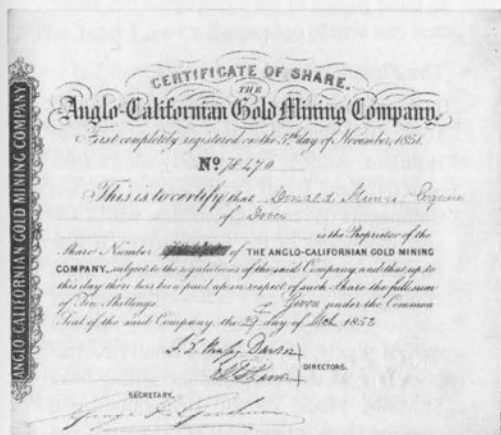 ANGLO-CALIFORNIAN GOLD MINING COMPANY
CERTIFICATE OF SHARE.
THE
Anglo-Californian Gold Mining Company.
First completely registered on the 5th day of November, 1851.
No 78470
This is to certify that Donald Munro Esquire
of Dover
is the Proprietor of the
Share Number of THE ANGLO-CALIFORNIAN GOLD MINING
COMPANY, subject to the regulations of the said Company and that up to
this day there has been paid up in respect of such Share the full sum
of Ten Shillings. Given under the Common
Seal of the said Company, the 29 day of Mch 1852
DIRECTORS.
SECRETARY.
George